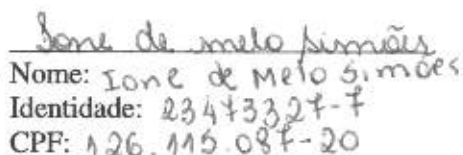 Ione de melo simões
Nome: Ione de Melo Simões
Identidade: 23473327-7
CPF: 126.115.087-20